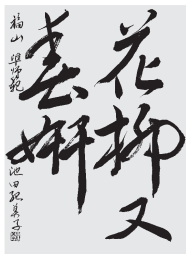 花柳又
春妍
福山 準師範
池田紀美子